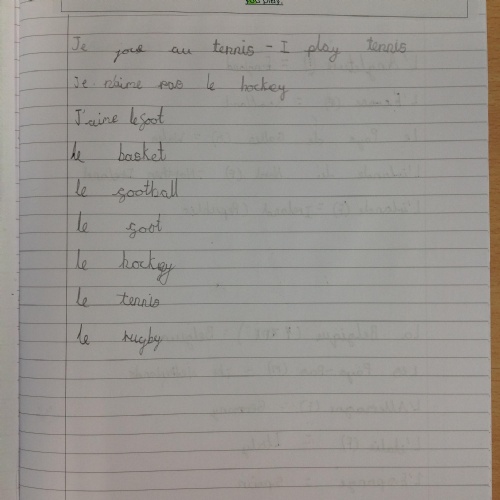 Je joue au tennis - I play tennis
Je n'aime pas le hockey
J'aime le foot
le basket
le football
le foot
le hockey
le tennis
le rugby